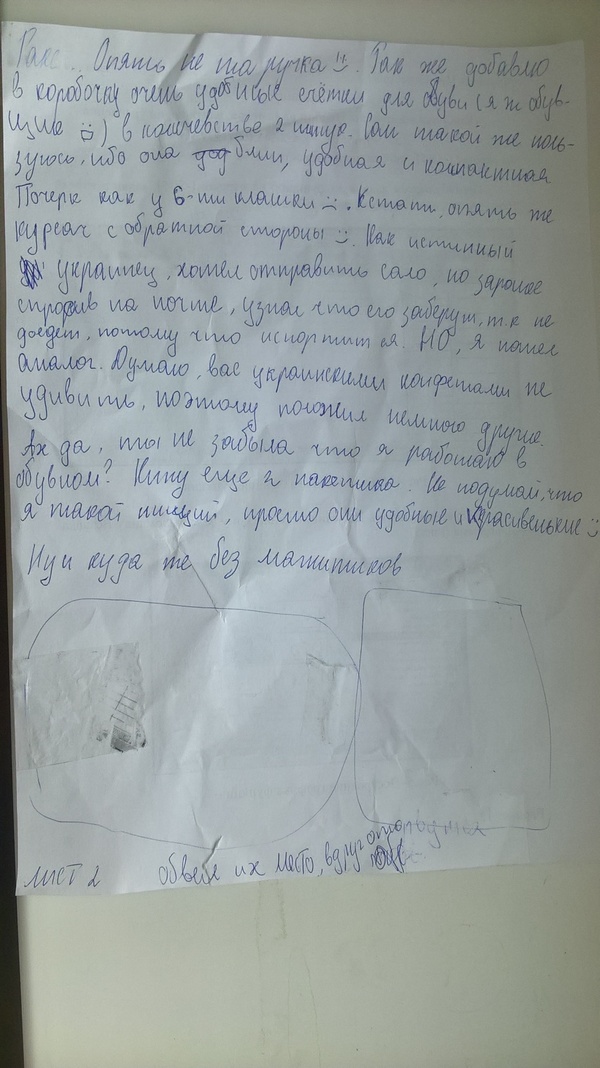 Так... Опять не та ручка :( . Так же добавлю
в коробочку очень удобные щётки для обуви (я ж обув-
щик :) ) в количевстве 2 штук. Сам такой же поль-
зуюсь, ибо она блин, удобная и компактная
Почерк как у 6-ти клашки :( . Кстати, опять же
курсач с обратной стороны :) . Как истинный
украинец, хотел отправить сало, но заранее
спросив на почте, узнал что его заберут, т.к не
доедет, потому что испортится. НО, я нашел
аналог. Думаю, вас украинскими конфетами не
удивить, поэтому положил немного другие.
Ах да, ты не забыла что я работаю в
обувном? Кину еще 2 пакетика. Не подумай, что
я такой нищий, просто они удобные и красивенькие :)
Ну и куда же без магнитиков
лист 2
обвел их место, вдруг отклеятся